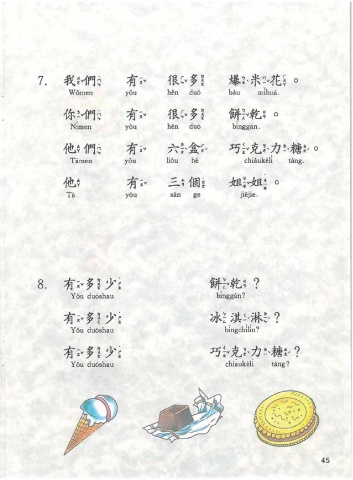 7. 我們 有 很多 爆米花。
Wǒmen yǒu hěn duō bàu mǐhuā.
你們 有 很多 餅乾。
Nǐmen yǒu hěn duō bǐnggān.
他們 有 六盒 巧克力糖。
Tāmen yǒu lìou hé chiǎukèlì táng.
他 有 三個 姐姐。
Tā yǒu sān ge jiějie.
8. 有多少 餅乾?
Yǒu duōshau bǐnggān?
有多少 冰淇淋?
Yǒu duōshau bīngchílín?
有多少 巧克力糖?
Yǒu duōshau chiǎukèlì táng?
45